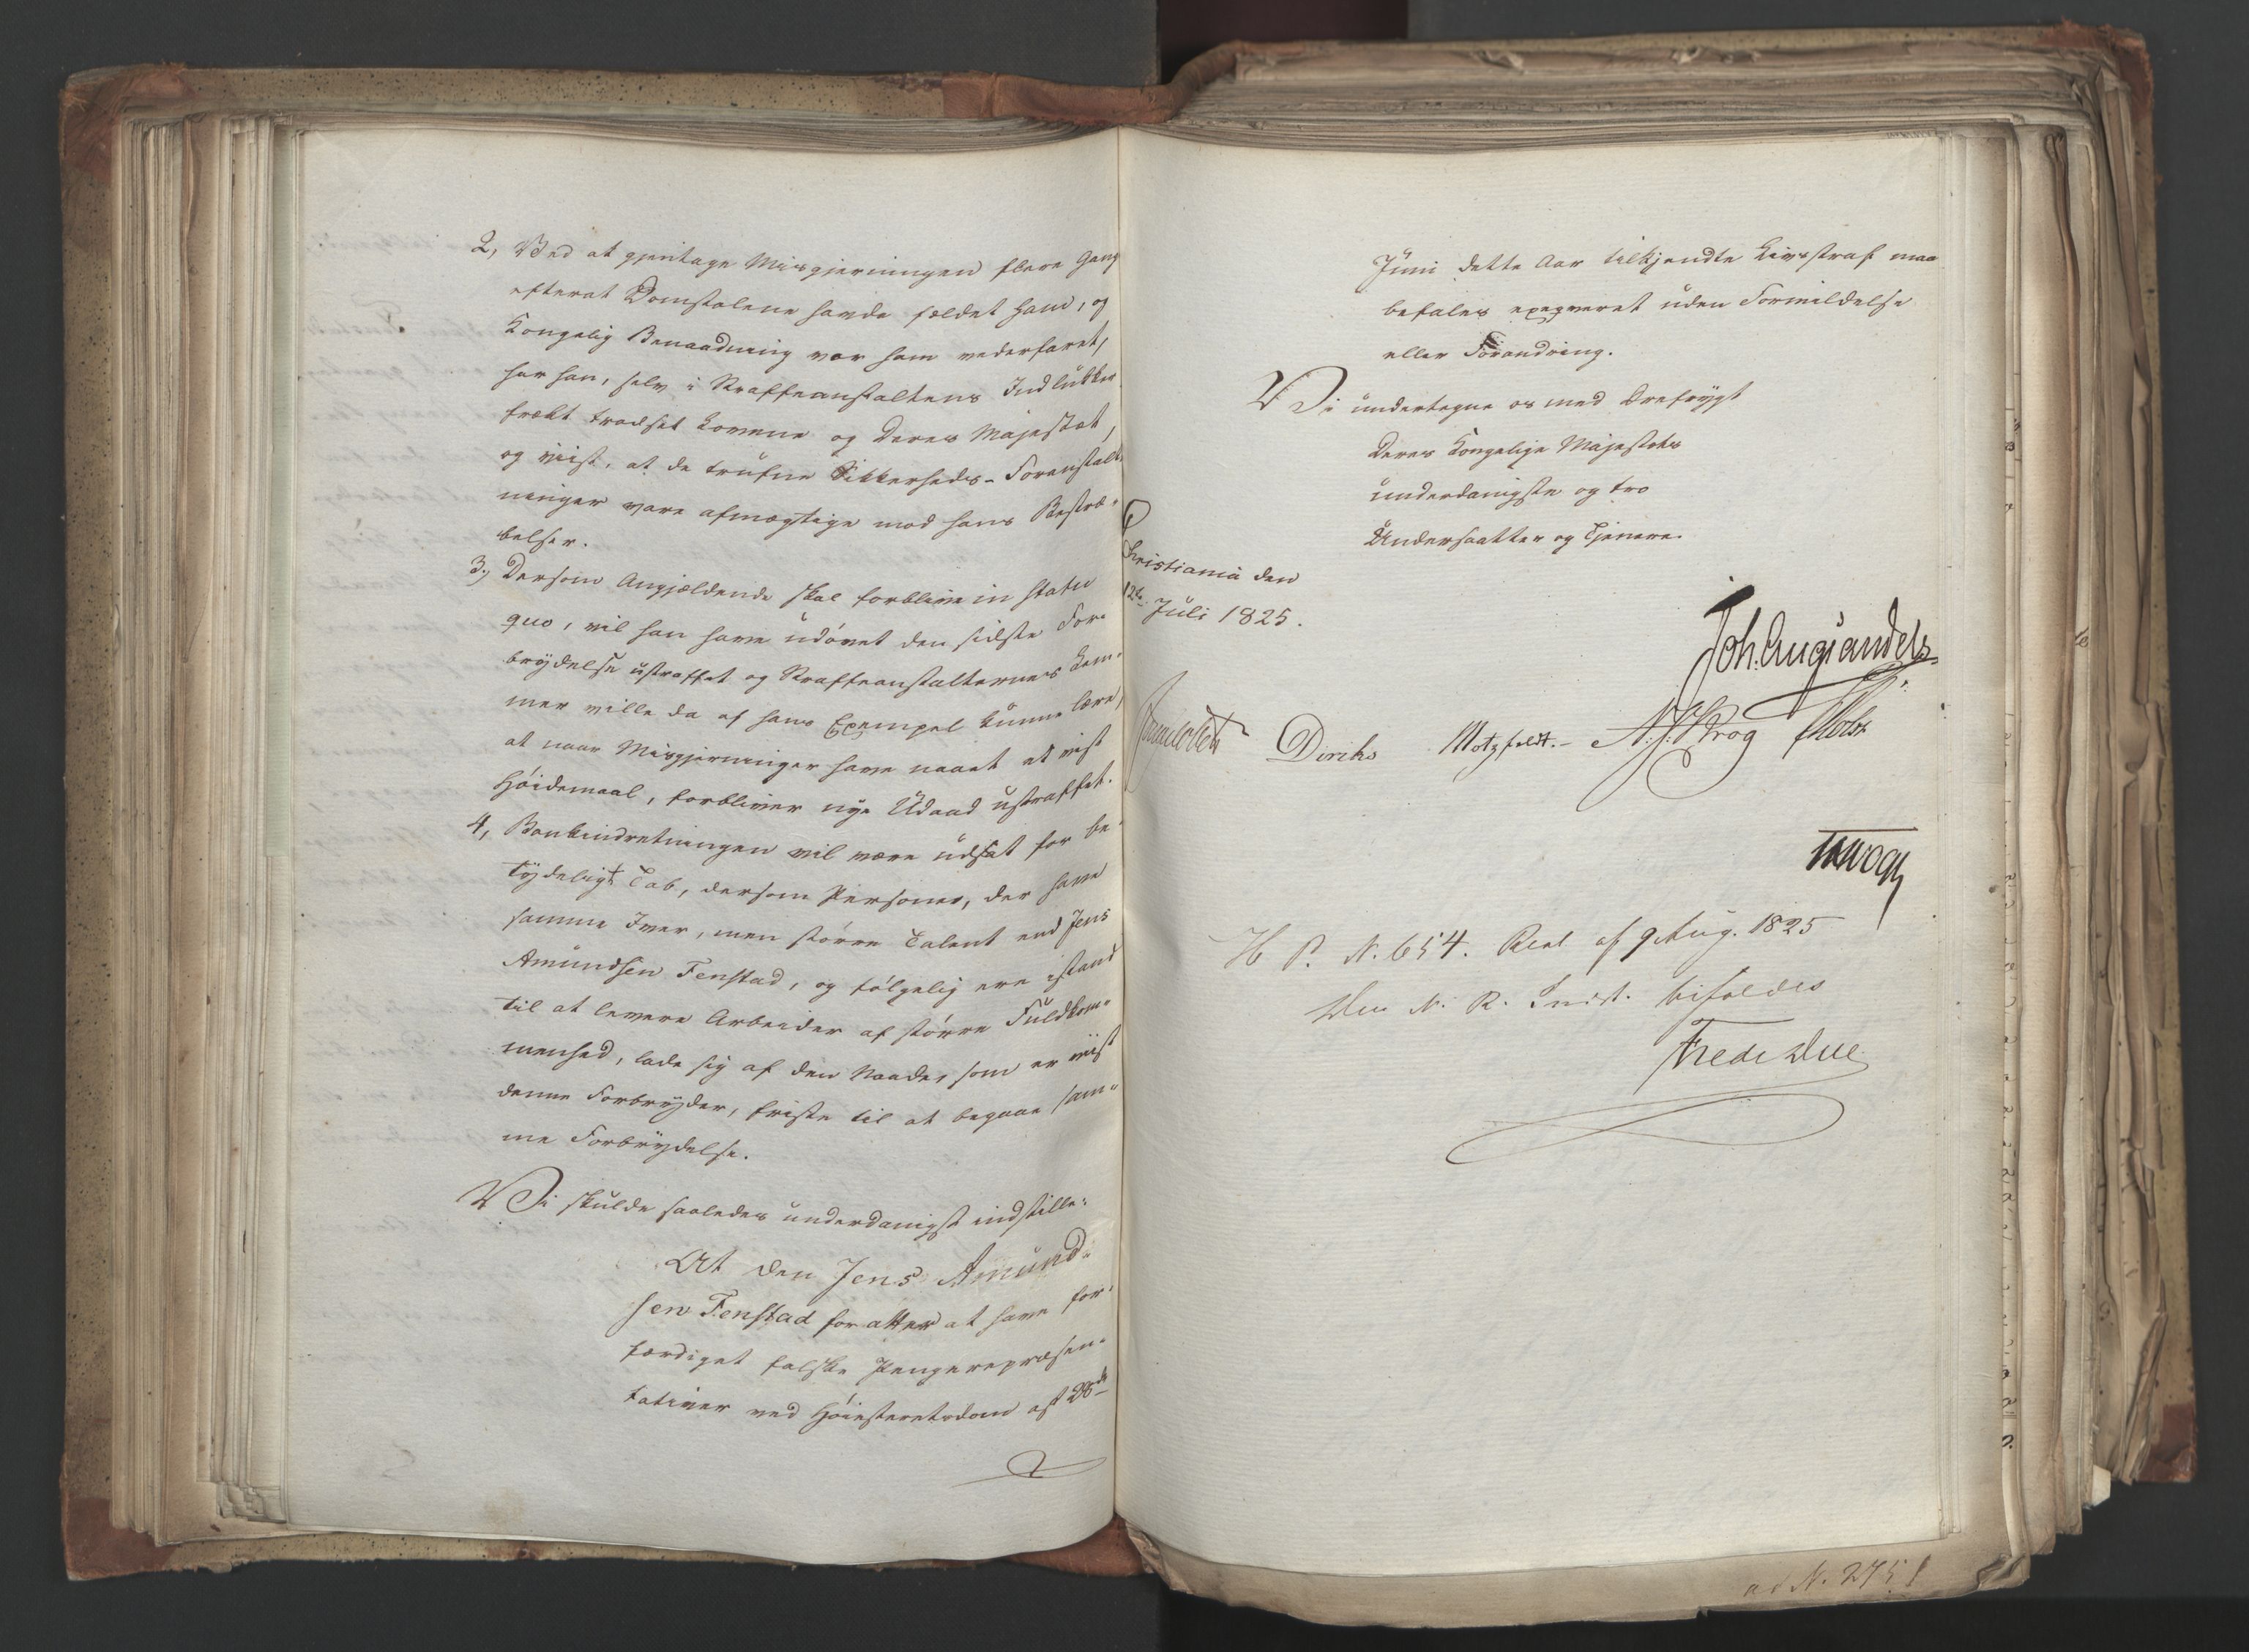 2, Ved at gjentage Misgjerningen flere Gang
efterat Domstolene havde fældet ham, og
Kongelig Benaadning var ham vederfaret,
har han, selv i Straffeanstaltens Indlukker
frækt trodset Lovene og Deres Majestæt,
og viist, at de trufne Sikkerheds-Foranstalt-
ninger vare afmægtige mod hans Bestræ-
belser.
3, Dersom Angjældende skal forblive in statu
quo, vil han have udøvet den sidste For-
brydelse ustraffet og Straffeanstalternes Lem-
mer ville da af hans Exempel kunne lære,
at naar Misgjerninger have naaet et vist
Høidemaal, forbliver nye Udaad ustraffet.
4, Bankindretningen vil være udsat for be-
tydeligt Tab, dersom Personer, der have
samme Iver, men større Talent end Jens
Amundsen Fenstad, og følgelig ere istand
til at levere Arbeider af større Fuldkom-
menhed, lade sig af den Naade, som er viist
denne Forbryder, friste til at begaae sam-
me Forbrydelse.
Vi skulde saaledes underdanigst indstille:
At den Jens Amund-
sen Fenstad for atter at have for-
færdiget falske Pengerepræsen-
tativer ved Høiesteretsdom af 28de
Juni dette Aar tilkjendte Livsstraf maa
befales exeqveret uden Formildelse
eller Forandring.
Vi undertegne os med Ærefrygt
Deres Kongelige Majestæts
underdanigste og tro
Undersaatter og Tjenere.
Christiania den
12te Juli 1825.
Joh. Aug. Sandels
Sommerhielm Diriks Motzfeldt.- N. J. Krog Holst
H P. N. 654. Resol. af 9 Aug. 1825
Den N. R. Indst. bifaldes
Fred: Due
ad N. 275